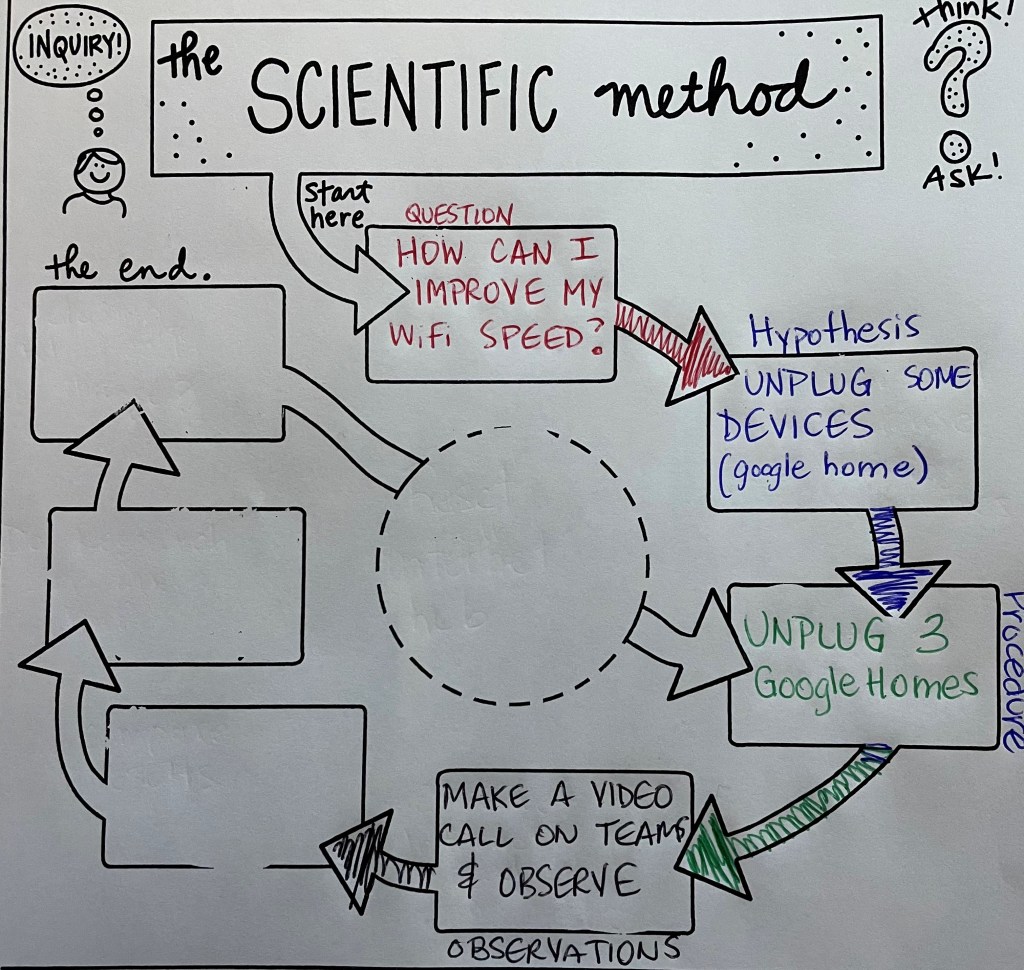 INQUIRY!
the SCIENTIFIC method
think!
ASK!
start
here
QUESTION
HOW CAN I
IMPROVE MY
WiFi SPEED?
the end.
Hypothesis
UNPLUG SOME
DEVICES
(google home)
UNPLUG 3
Google Homes
Procedure
MAKE A VIDEO
CALL ON TEAMS
& OBSERVE
OBSERVATIONS